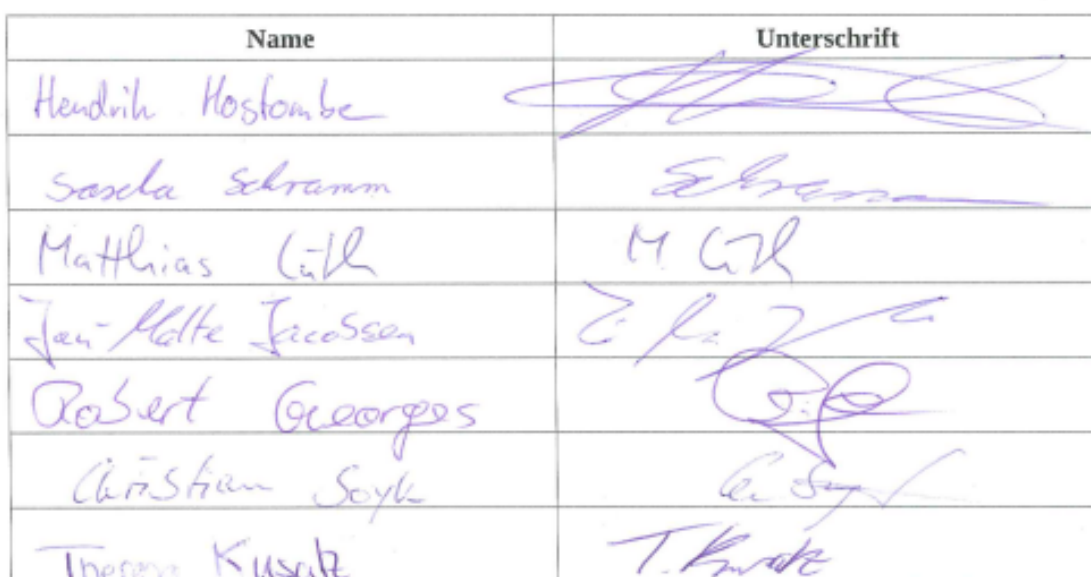 Name Unterschrift
Hendrik Hostombe
Sascha Schramm Schramm
Matthias Lüth M. Lüth
Jan-Malte Jacobsen
Robert Georges
Christian Soyk
Theresa Kusatz T. Kusatz